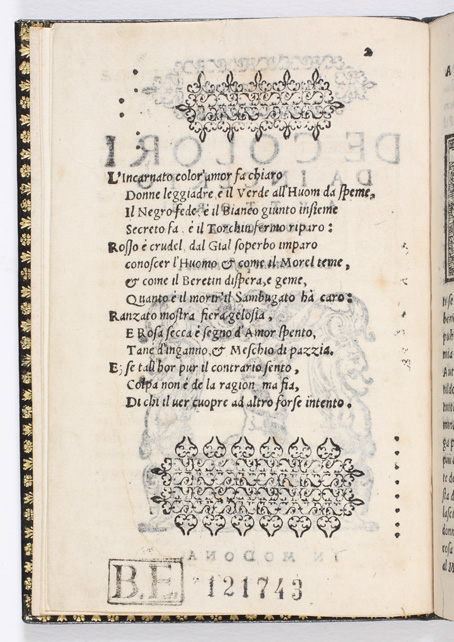 L'Incarnato color'amor fa chiaro
Donne leggiadre è il Verde all'Huom da speme,
Il Negro fede, è il Bianco giunto insieme
Secreto fa, è il Torchin fermo riparo:
Rosso è crudel, dal Gial soperbo imparo
conoscer l'Huomo & come il Morel teme,
& come il Beretin dispera, e geme,
Quanto è il morir'il Sambugato hà caro:
Ranzato mostra fiera gelosia,
E Rosa secca è segno d'Amor spento,
Tanè d'inganno, & Meschio di pazzia.
E; se tall'hor pur il contrario sento,
Colpa non è de la ragion ma fia,
Di chi il uer cuopre ad altro forse intento.
B.E.
121743